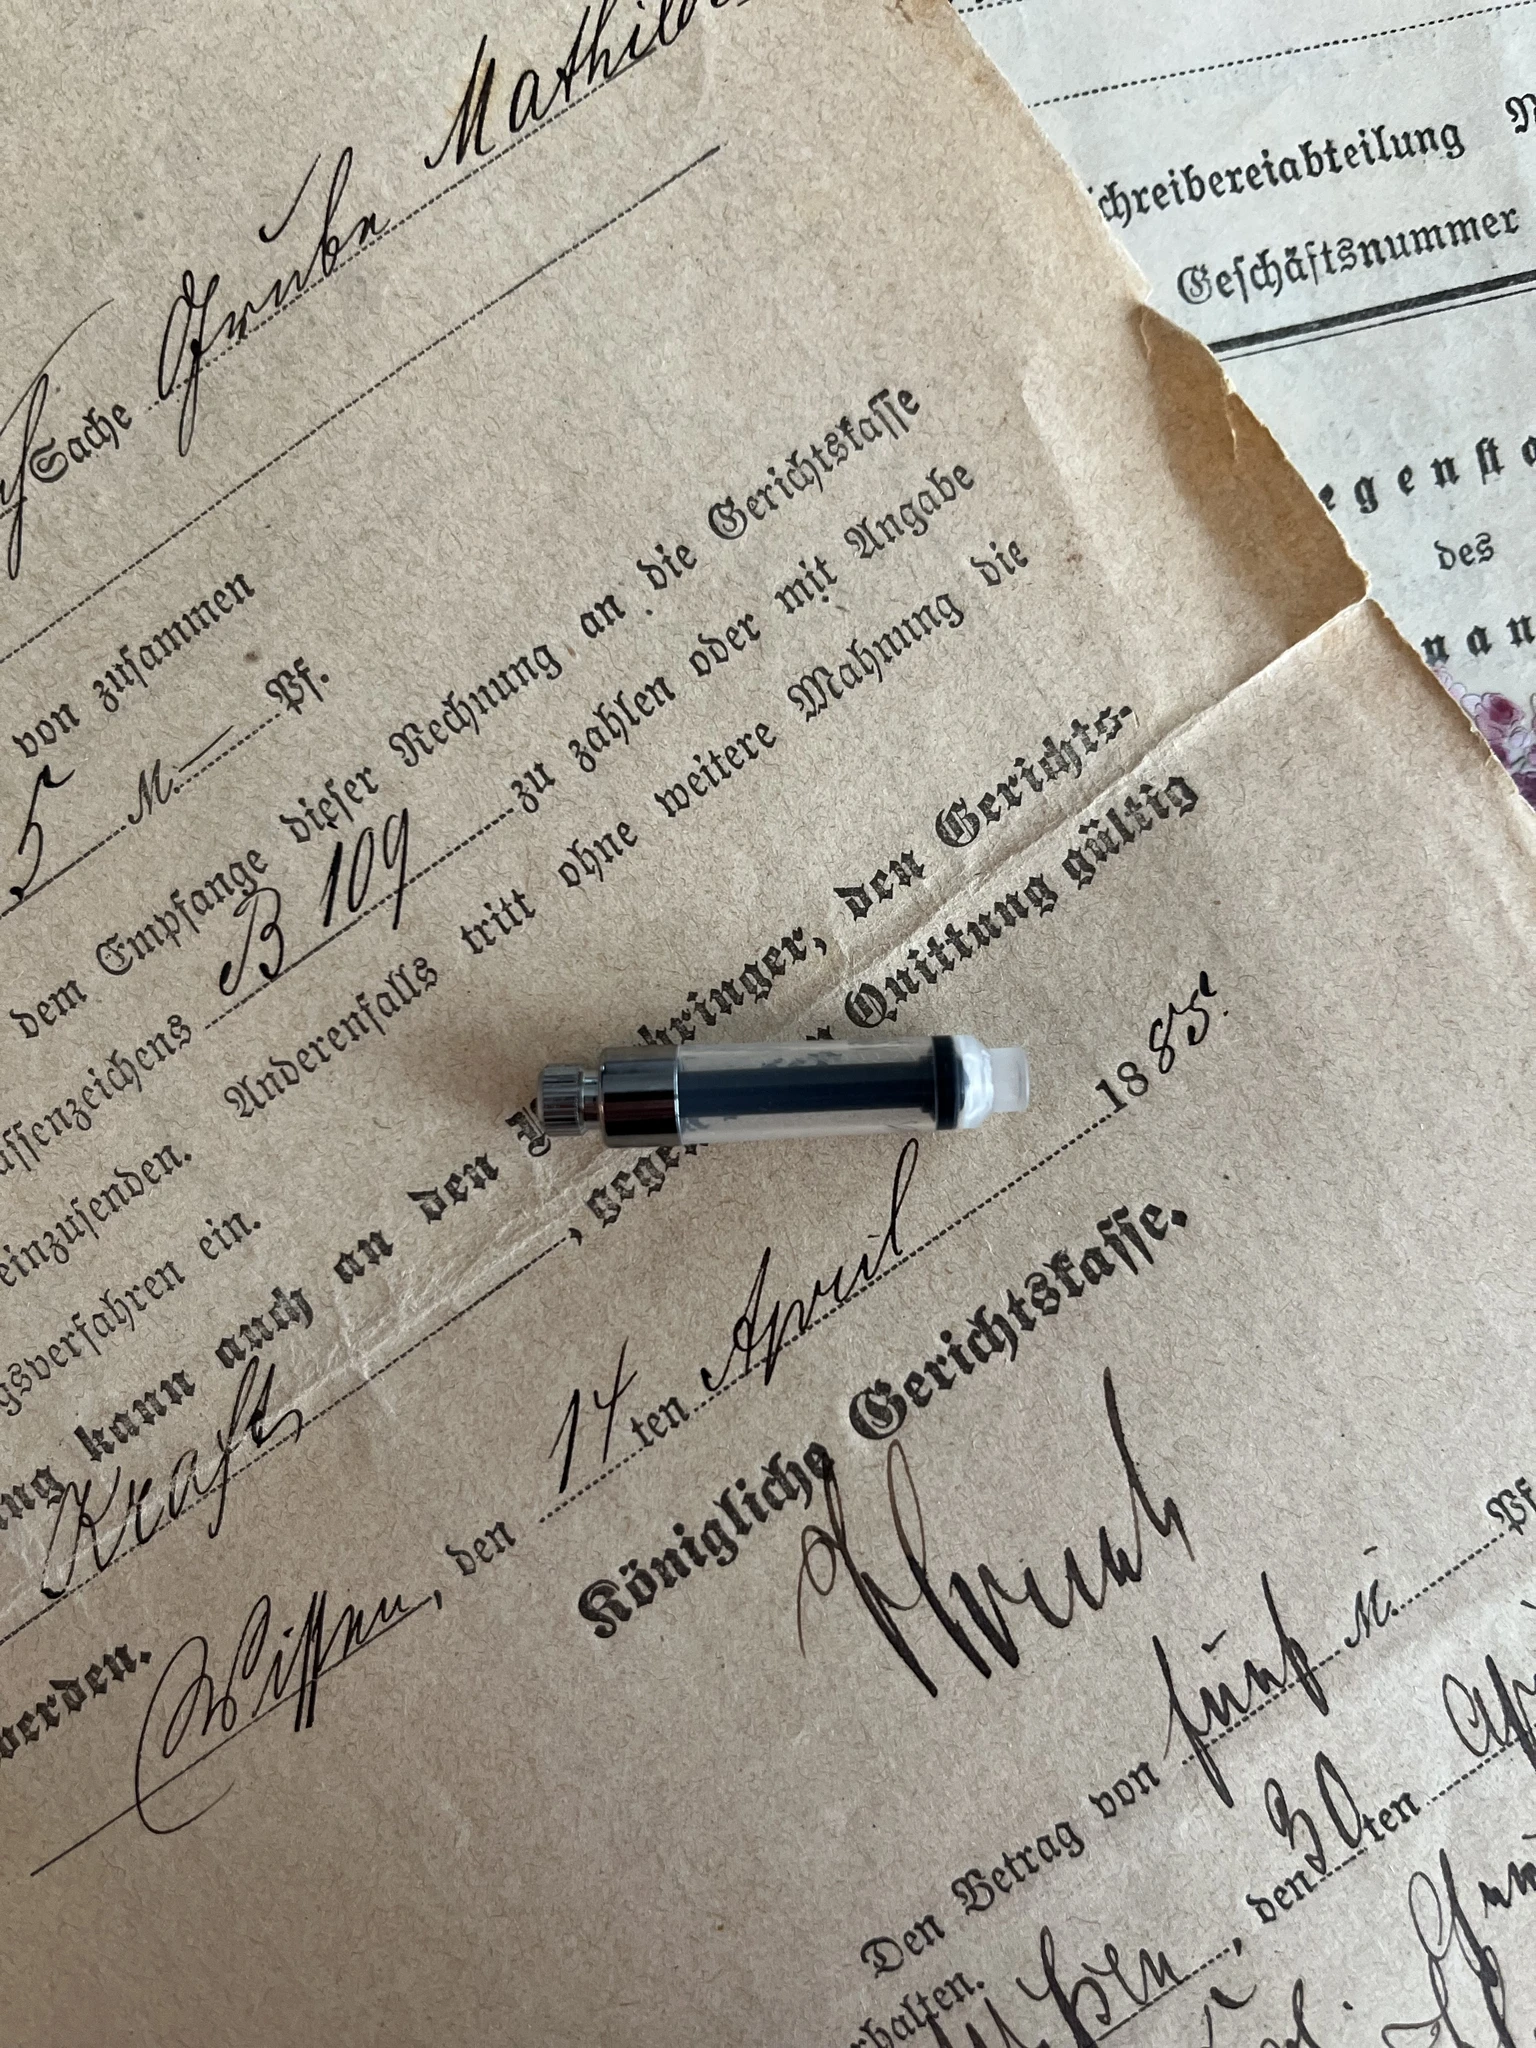 Sache Grube Mathilde
von zusammen
5 M. — Pf.
dem Empfange dieser Rechnung an die Gerichtskasse
assenzeichens B 109 zu zahlen oder mit Angabe
einzusenden. Anderenfalls tritt ohne weitere Mahnung die
gsverfahren ein.
ng kann auch an den hringer, den Gerichts-
Kraft, gegen Quittung gültig
werden.
Wissen, den 14ten April 1885.
Königliche Gerichtskasse.
Den Betrag von fünf M. Pf
rhalten.
, den 30ten Ap
chreibereiabteilung
Geschäftsnummer
egensta
des
nan